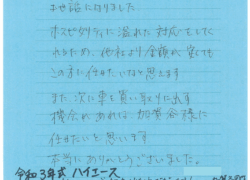 お世話になりました
ホスピタリティに溢れた対応をしてく
れるため、他社より金額が安くても
この方に任せたいなと思えます
また、次に車を買い取りに出す
機会があれば、加賀谷様に
任せたいと思います
本当にありがとうございました。
令和3年式 ハイエース